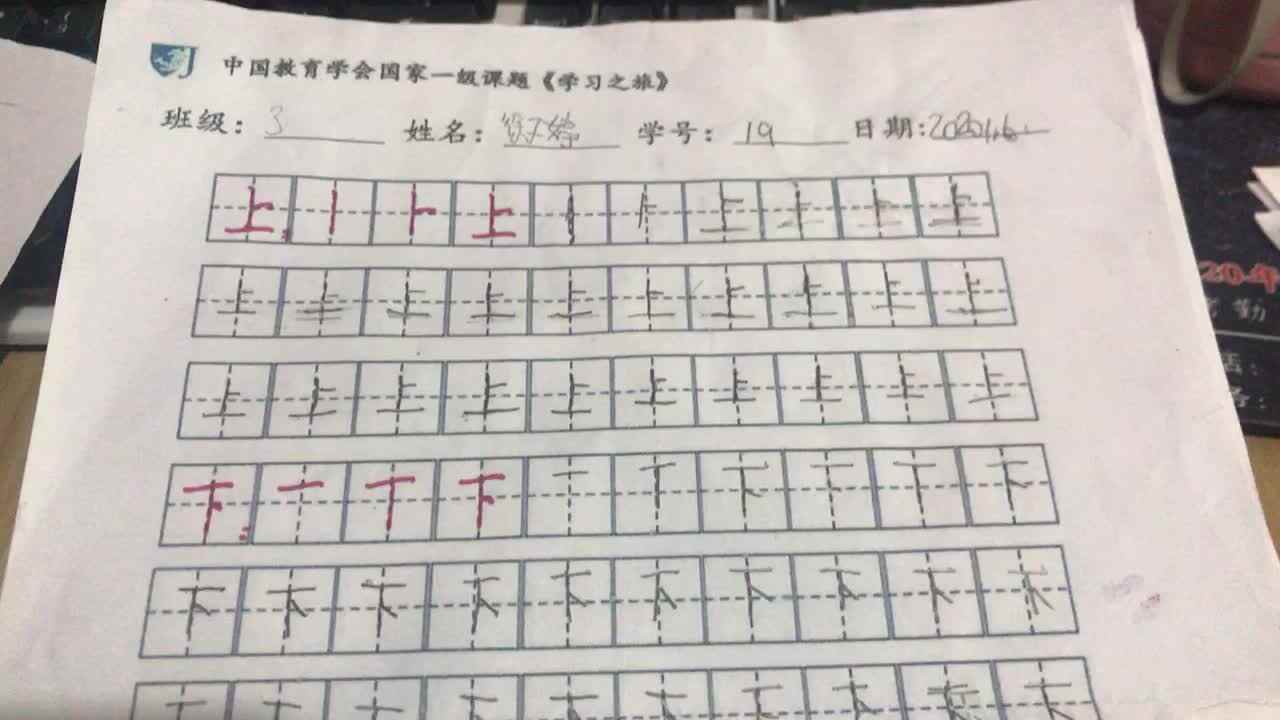 中国教育学会国家一级课题《学习之旅》
班级: 3 姓名: 学号: 19 日期:
上 丨 卜 上 丨 卜 上 上 上 上
上 上 上 上 上 上 上 上 上 上
上 上 上 上 上 上 上 上 上 上
下 一 丅 下 一 丅 下 下 下 下
下 下 下 下 下 下 下 下 下 下
20年
勤